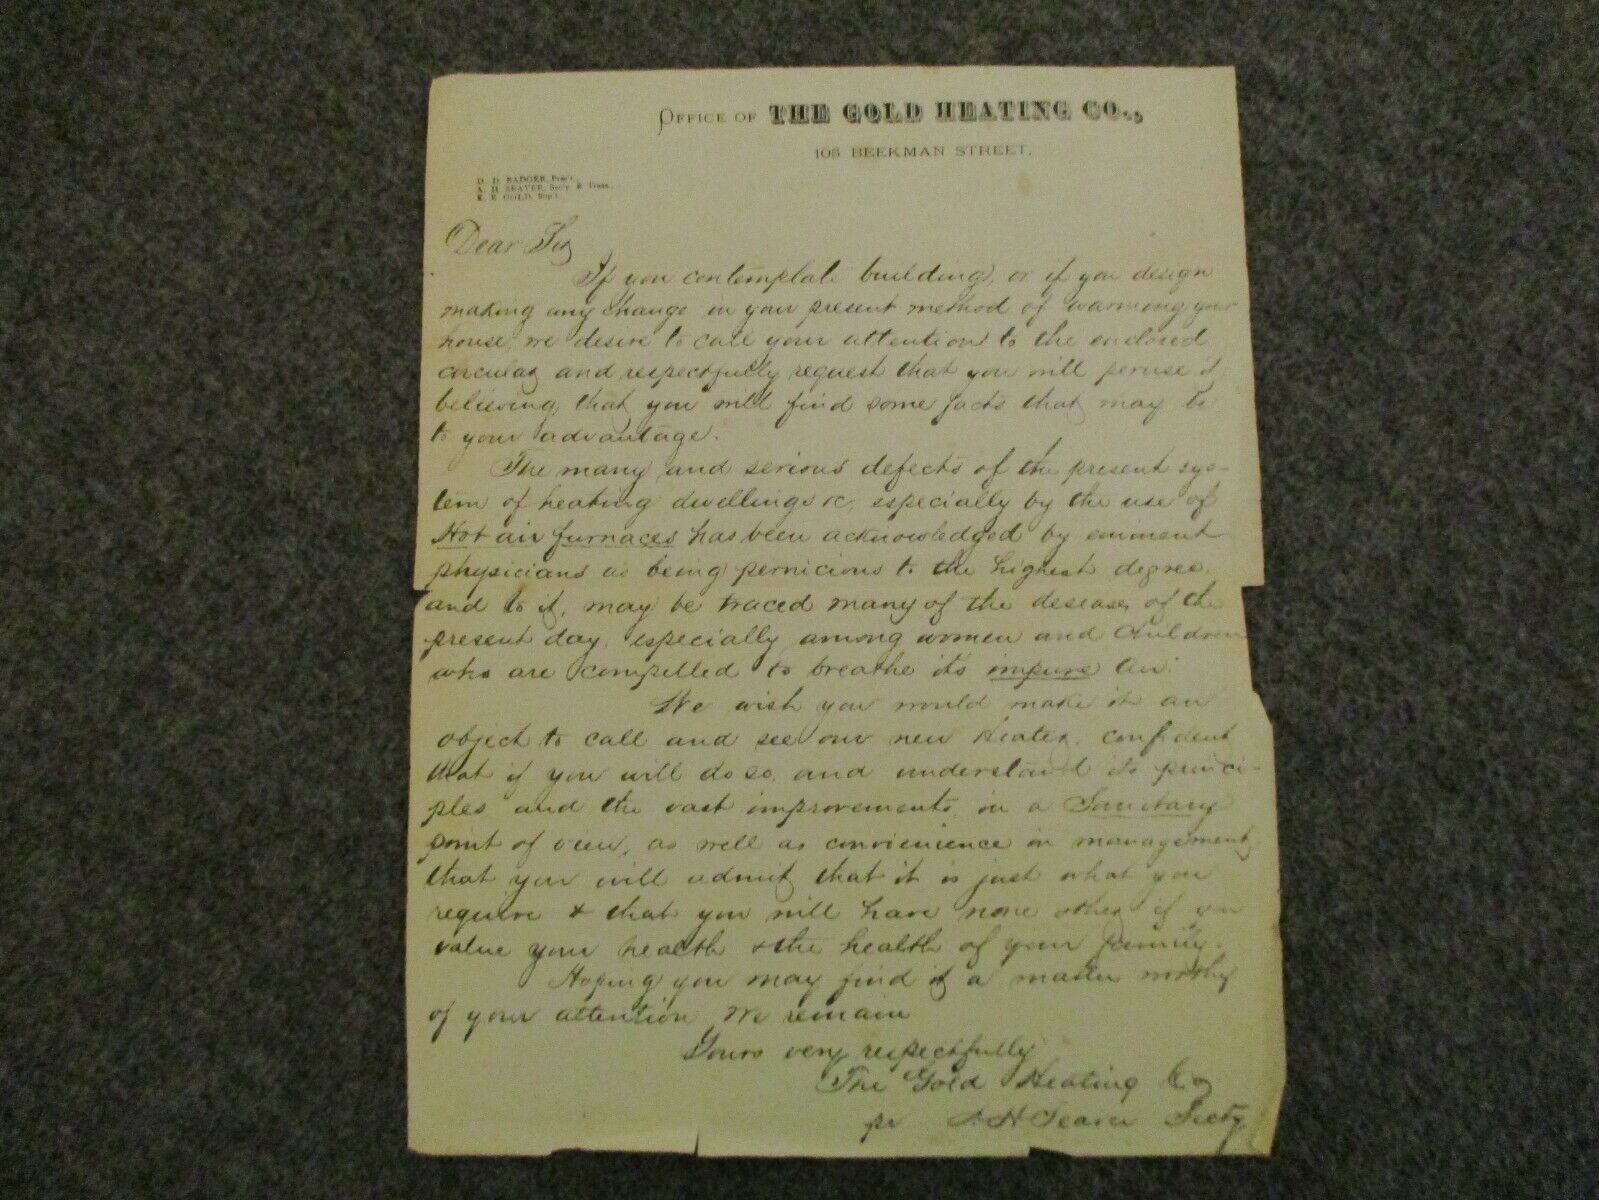 OFFICE OF THE GOLD HEATING CO.,
105 BEEKMAN STREET.
D. D. BADGER, Pres't.
A. H. SEAVER, Sec'y. & Treas.
E. E. GOLD, Sup't.
Dear Sir,
If you contemplate building, or if you design
making any change in your present method of warming your
house, we desire to call your attention to the enclosed
circular and respectfully request that you will peruse it
believing that you will find some facts that may be
to your advantage.
The many and serious defects of the present sys-
tem of heating dwellings &c, especially by the use of
Hot air furnaces has been acknowledged by eminent
physicians as being pernicious to the highest degree,
and to it, may be traced many of the diseases of the
present day, especially among women and children
who are compelled to breathe its impure air.
We wish you would make it an
object to call and see our new Heater, confident
that if you will do so, and understand its princi-
ples and the vast improvements, in a Sanitary
point of view, as well as convienience in management,
that you will admit that it is just what you
require & that you will have none other if you
value your health & the health of your family.
Hoping you may find it a matter worthy
of your attention, We remain
Yours very respectfully
The Gold Heating Co
pr A H Seaver Secty